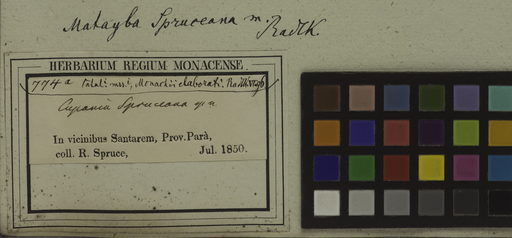 Matayba Spruceana m.
Radlk.
HERBARIUM REGIUM MONACENSE.
774a tabul. mss., Monachii elaborati. Radlk.
Cupania Spruceana
In vicinibus Santarem, Prov. Parà,
coll. R. Spruce, Jul. 1850.